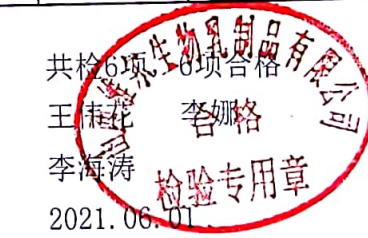 共检6项 6项合格
王伟花 李娜
李海涛
2021.06.01
生物乳制品有限公司
合格
检验专用章